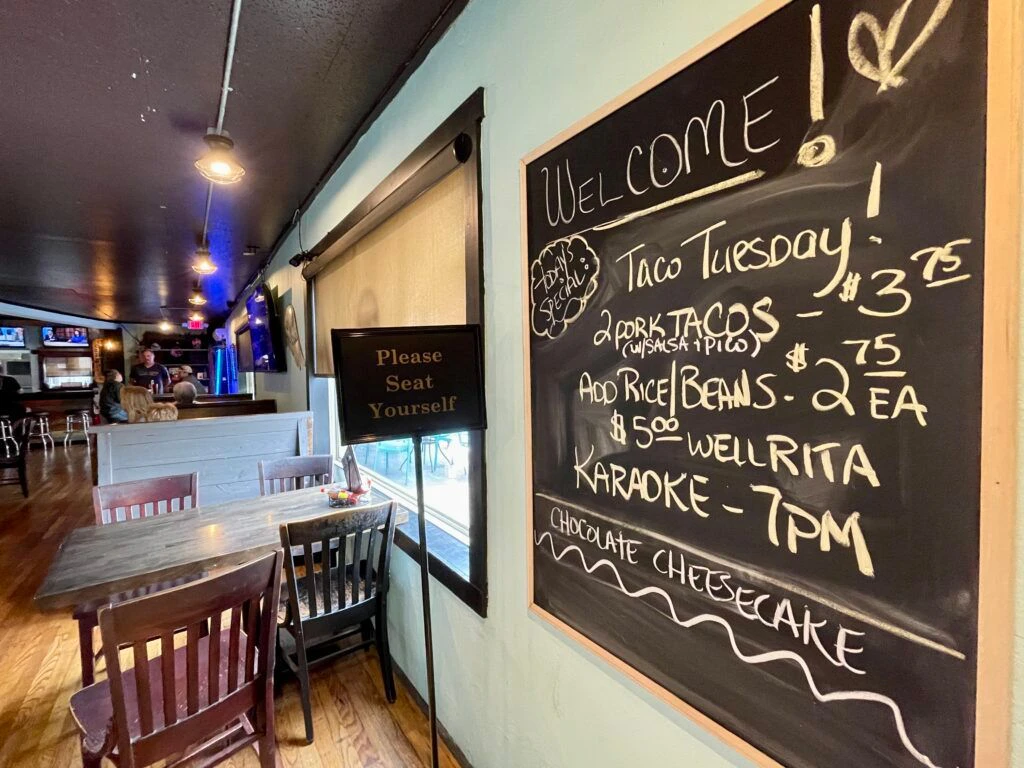 WELCOME!
TODAYS
SPECIAL:
Taco Tuesday!
2 PORK TACOS - $3.75
(W/SALSA + PICO)
ADD RICE/BEANS - $2.75 EA
$5.00 WELL RITA
KARAOKE - 7PM
CHOCOLATE CHEESECAKE
Please
Seat
Yourself